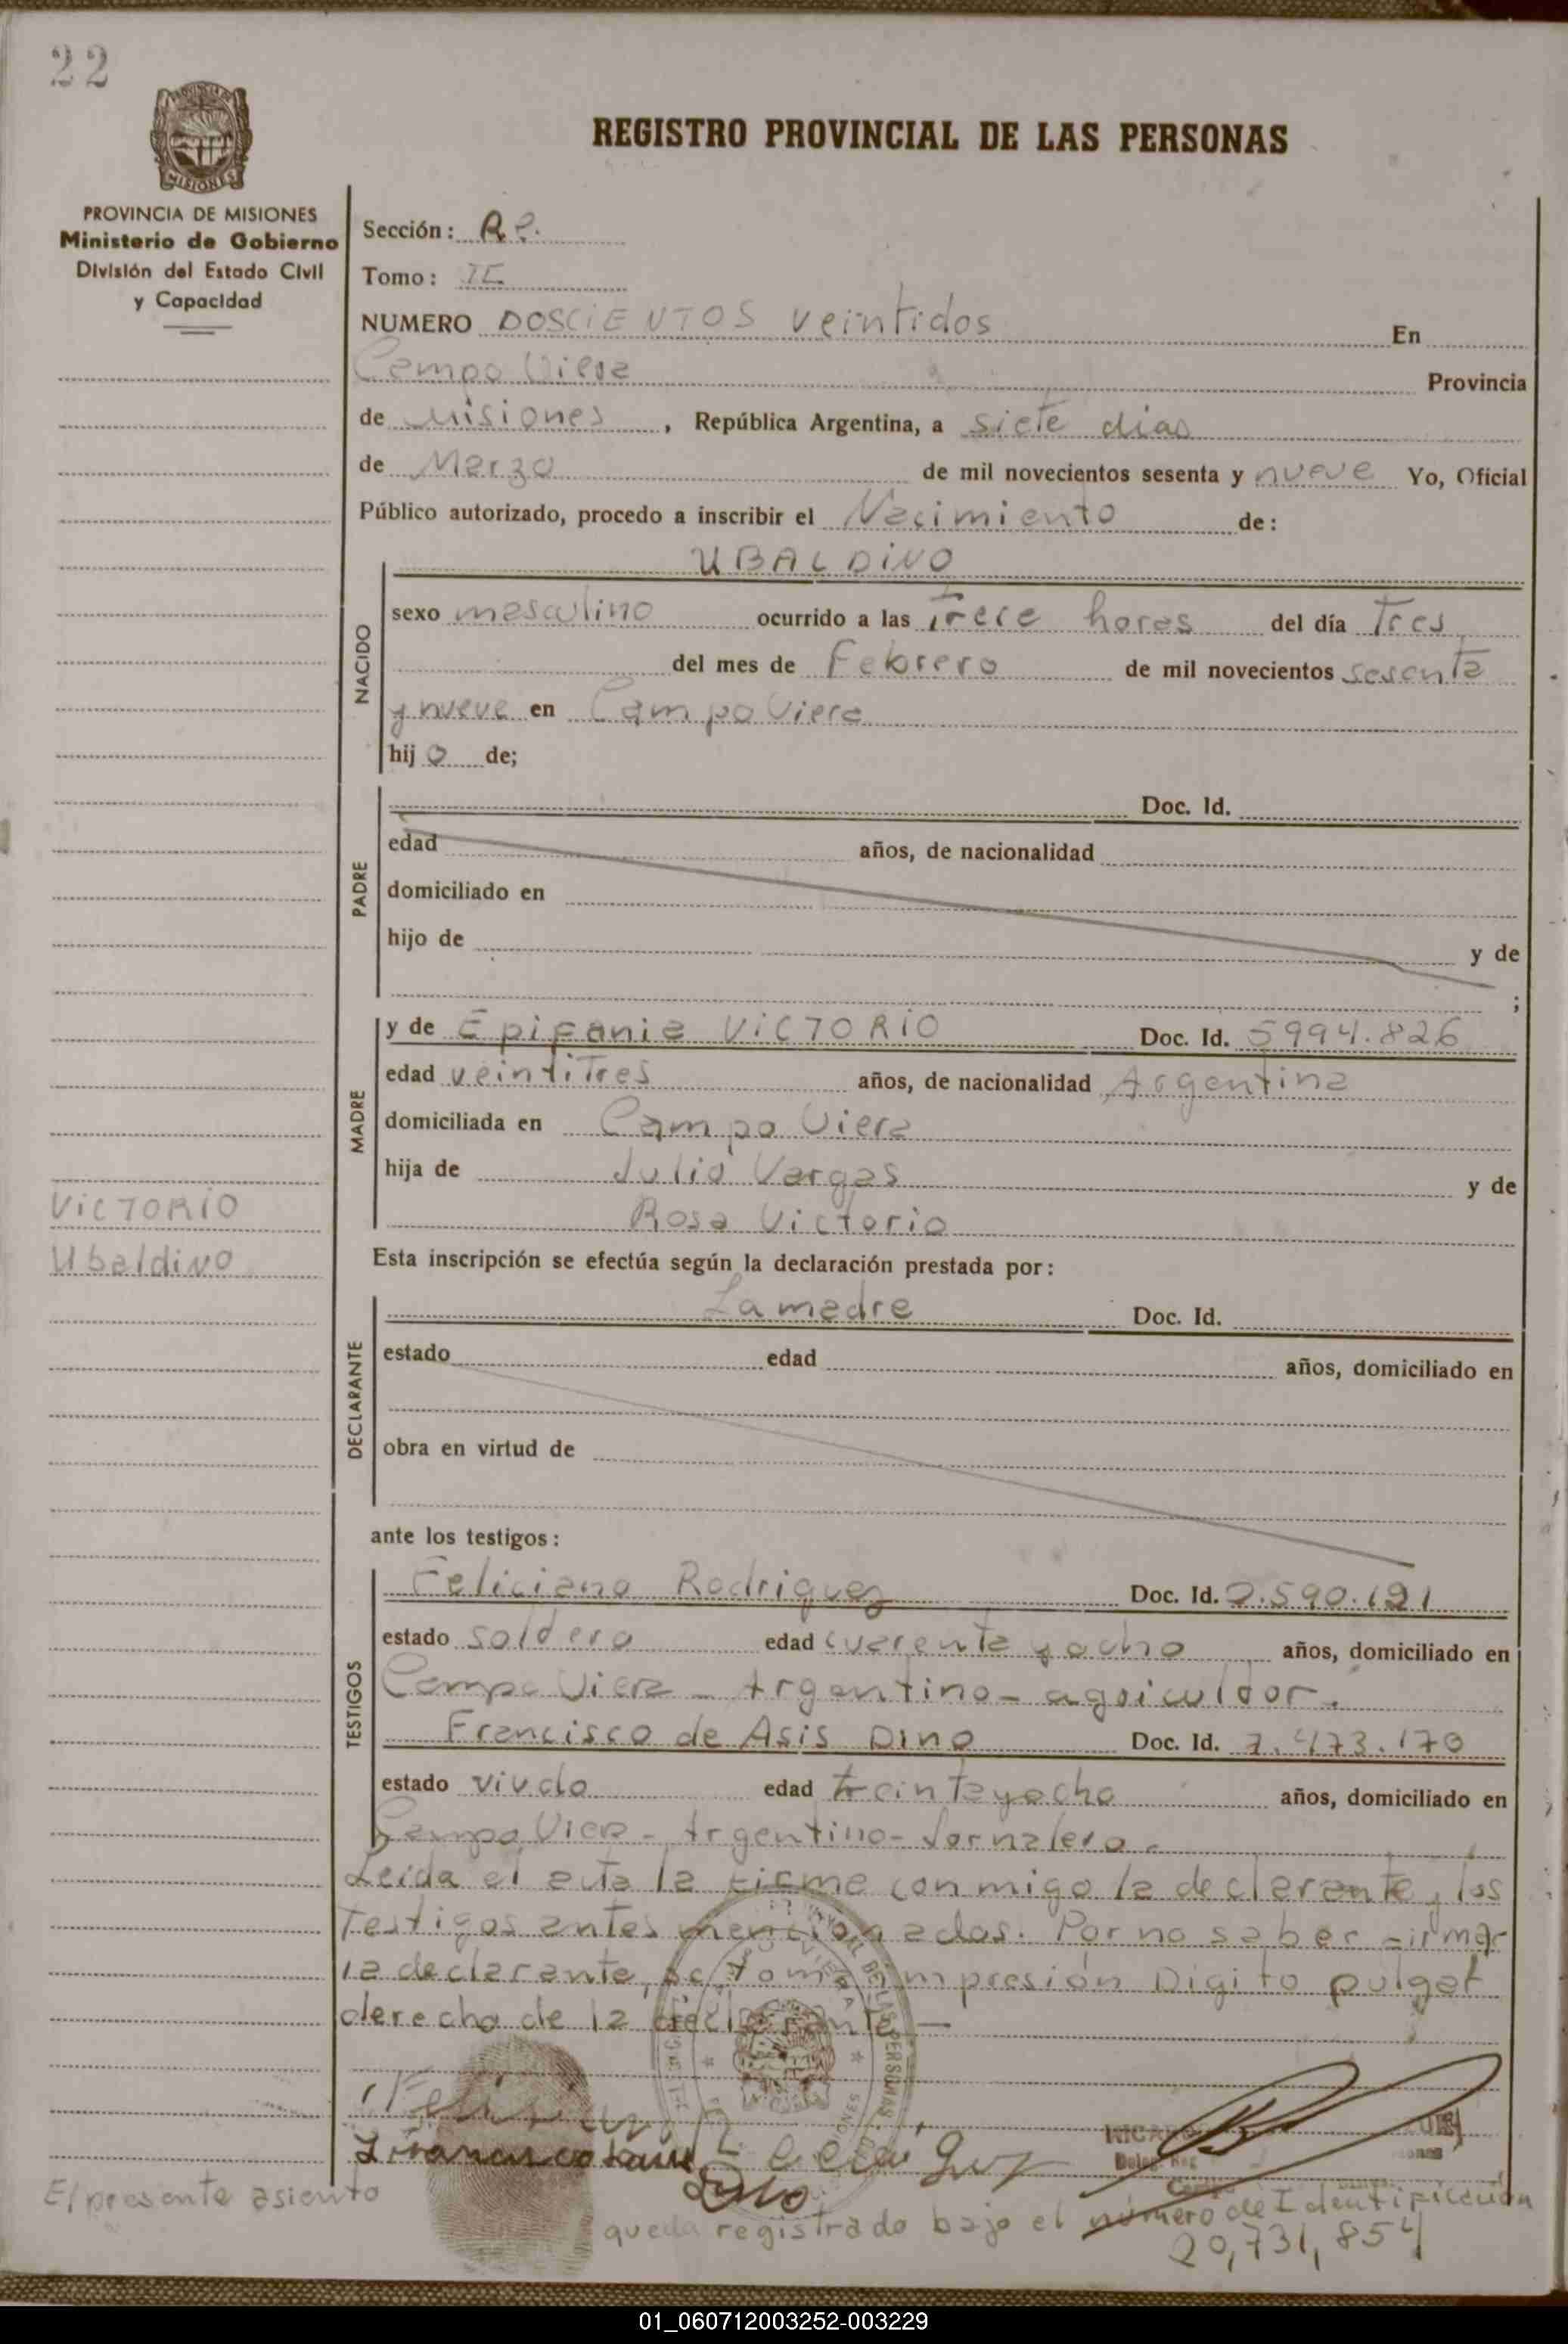 22
PROVINCIA DE MISIONES
Ministerio de Gobierno
División del Estado Civil
y Capacidad
REGISTRO PROVINCIAL DE LAS PERSONAS
Sección:
Tomo: II
NUMERO DOSCIENTOS veintidos En
Campo Viera Provincia
de Misiones, República Argentina, a siete dias
de Marzo de mil novecientos sesenta y nueve Yo, Oficial
Público autorizado, procedo a inscribir el Nacimiento de:
NACIDO
UBALDINO
sexo masculino ocurrido a las Trece horas del día Tres
del mes de Febrero de mil novecientos sesenta
y nueve en Campo Viera
hijo de;
PADRE
Doc. Id.
edad años, de nacionalidad
domiciliado en
hijo de y de
;
MADRE
y de Epifania VICTORIO Doc. Id. 5994.826
edad veintiTres años, de nacionalidad Argentina
domiciliada en Campo Viera
hija de Julio Vargas y de
Rosa Victorio
VICTORIO
Ubaldino
Esta inscripción se efectúa según la declaración prestada por:
DECLARANTE
La madre Doc. Id.
estado edad años, domiciliado en
obra en virtud de
ante los testigos:
TESTIGOS
Feliciano Rodriguez Doc. Id. 2.590.191
estado soldero edad cuarenta y ocho años, domiciliado en
Campo Viera - Argentino - agricultor.
Francisco de Asis DINO Doc. Id. 7.473.170
estado viudo edad treintayocho años, domiciliado en
Campo Viera - Argentino - Jornalero.
Leida el acta la firme conmigo la declarante, los
Testigos antes mencionados. Por no saber firmar
la declarante, se toma impresión Digito pulgar
derecho de la declarante —
El presente asiento
queda registrado bajo el número de Identificación
20,731,854
01_060712003252-003229